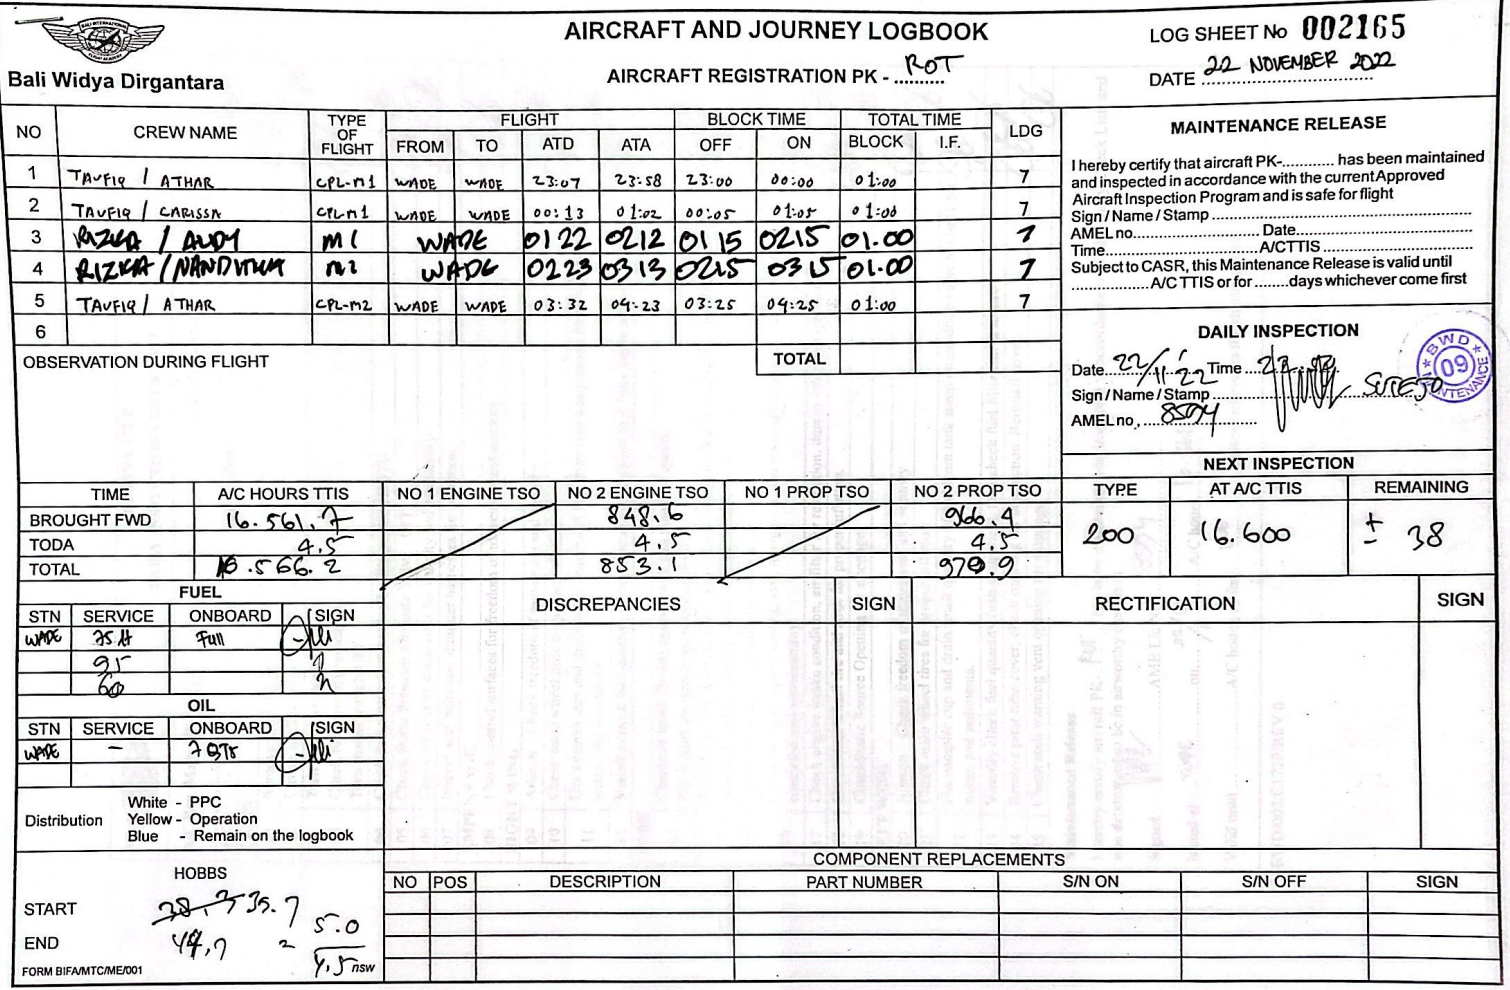 AIRCRAFT AND JOURNEY LOGBOOK
LOG SHEET No 002165
Bali Widya Dirgantara
AIRCRAFT REGISTRATION PK - ROT
DATE 22 NOVEMBER 2022
NO CREW NAME TYPE OF FLIGHT FLIGHT BLOCK TIME TOTAL TIME LDG
FROM TO ATD ATA OFF ON BLOCK I.F.
1 TAUFIQ / ATHAR CPL-M1 WADE WADE 23:07 23:58 23:00 00:00 01:00 7
2 TAUFIQ / CARISSA CPL-M1 WADE WADE 00:13 01:02 00:05 01:05 01:00 7
3 RIZKA / AUDY M1 WADE 0122 0212 0115 0215 01.00 7
4 RIZKA / M2 WADE 0223 0313 0215 0315 01.00 7
5 TAUFIQ / ATHAR CPL-M2 WADE WADE 03:32 04:23 03:25 04:25 01:00 7
6
TOTAL
OBSERVATION DURING FLIGHT
MAINTENANCE RELEASE
I hereby certify that aircraft PK-............ has been maintained
and inspected in accordance with the current Approved
Aircraft Inspection Program and is safe for flight
Sign / Name / Stamp
AMEL no. Date
Time A/CTTIS
Subject to CASR, this Maintenance Release is valid until
A/C TTIS or for ........days whichever come first
DAILY INSPECTION
Date 22/11'22 Time
Sign / Name / Stamp SUTEJO
AMEL no,
BWD 09 MAINTENANCE
NEXT INSPECTION
TYPE AT A/C TTIS REMAINING
200 16.600 ± 38
TIME A/C HOURS TTIS NO 1 ENGINE TSO NO 2 ENGINE TSO NO 1 PROP TSO NO 2 PROP TSO
BROUGHT FWD 16.561.7 848.6 966.4
TODA 4.5 4.5 4.5
TOTAL 16.566.2 853.1 970.9
FUEL
STN SERVICE ONBOARD SIGN
WADE 75 lt Full
95
60
OIL
STN SERVICE ONBOARD SIGN
WADE - 7 QTS
Distribution
White - PPC
Yellow - Operation
Blue - Remain on the logbook
HOBBS
START 38.7 35.7
END 44.7 = 5.0
4.5 nsw
FORM BIFA/MTC/ME/001
DISCREPANCIES SIGN RECTIFICATION SIGN
COMPONENT REPLACEMENTS
NO POS DESCRIPTION PART NUMBER S/N ON S/N OFF SIGN